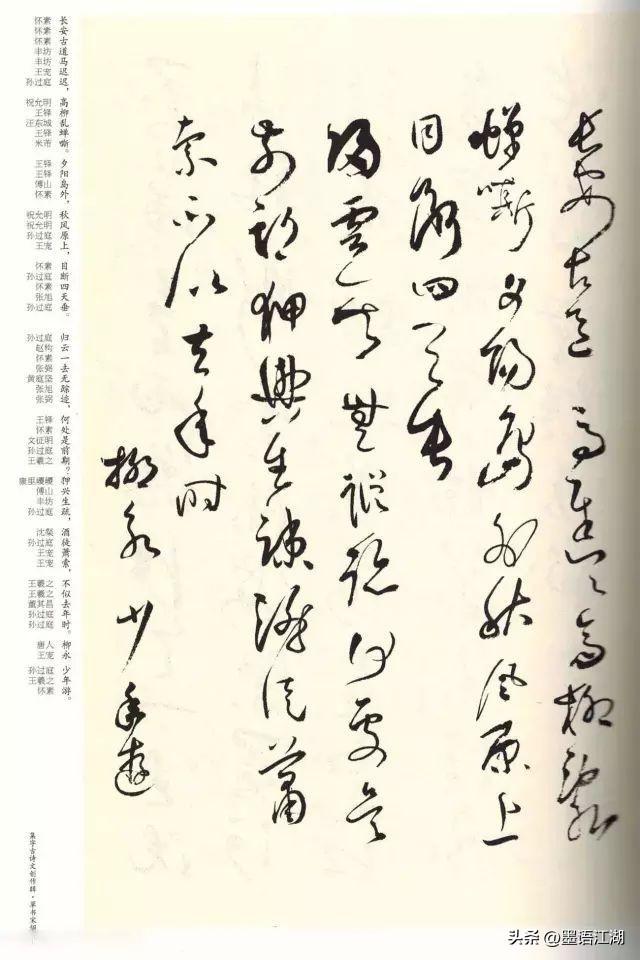 長安古道馬遲遲高柳亂
蟬嘶夕陽島外秋風原上
目斷四天垂
歸雲一去無蹤跡何處是
前期狎興生疎酒徒蕭
索不似去年時
柳永少年遊
长安古道马迟迟，高柳乱蝉嘶。夕阳岛外，秋风原上，目断四天垂。归云一去无踪迹，何处是前期？狎兴生疏，酒徒萧索，不似去年时。柳永 少年游。
怀素 怀素 怀素 丰坊 丰坊 王宠 孙过庭 祝允明 王铎 汪东城 王铎 米芾 王铎 王铎 傅山 怀素 祝允明 祝允明 孙过庭 王宠 怀素 孙过庭 怀素 张旭 孙过庭 孙过庭 赵构 怀素 张弼 黄庭坚 张旭 张弼 王铎 怀素 文征明 孙过庭 王羲之 康里巎巎 傅山 丰坊 孙过庭 沈粲 孙过庭 王宠 王宠 王羲之 王羲之 董其昌 孙过庭 孙过庭 唐人 王宠 孙过庭 王羲之 怀素
集字古诗文创作辑·草书宋词
头条 @墨语江湖